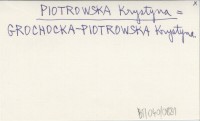 PIOTROWSKA Krystyna =
GROCHOCKA-PIOTROWSKA Krystyna